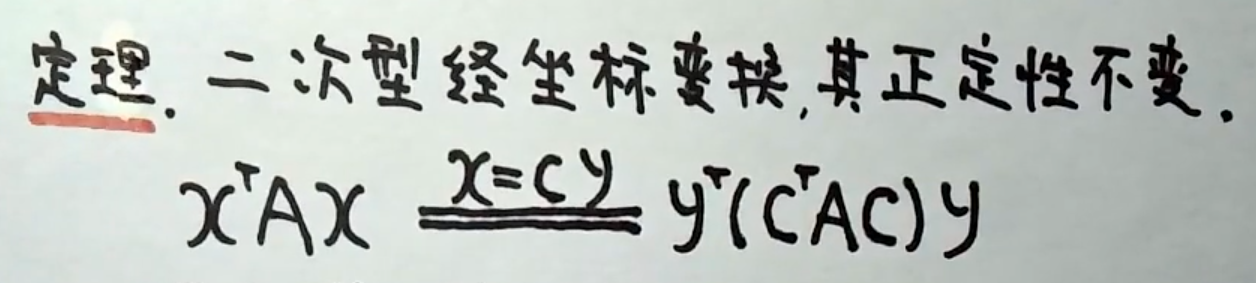 定理. 二次型经坐标变换,其正定性不变.
xᵀAx x=Cy yᵀ(CᵀAC)y